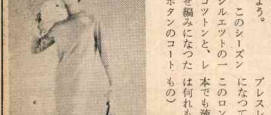 よう。
このシーズン
シルエットの一
コットンと、レ
せ編みになった
ボタンのコート
ブレスレ
になって
このロン
本でも流
は何れも
もの）